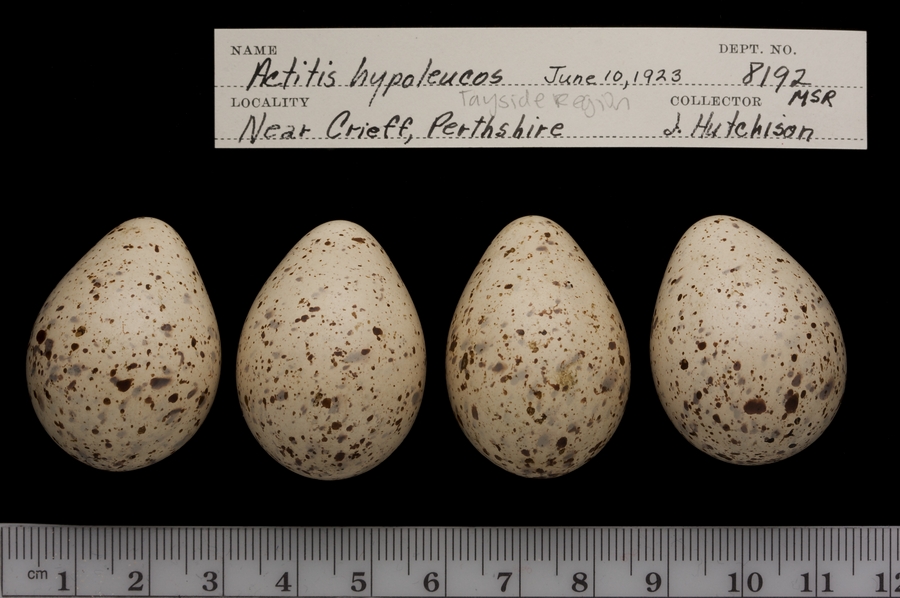 NAME DEPT. NO.
Actitis hypoleucos June 10, 1923 8192
LOCALITY Tayside Region COLLECTOR MSR
Near Crieff, Perthshire J. Hutchison
cm 1 2 3 4 5 6 7 8 9 10 11 12